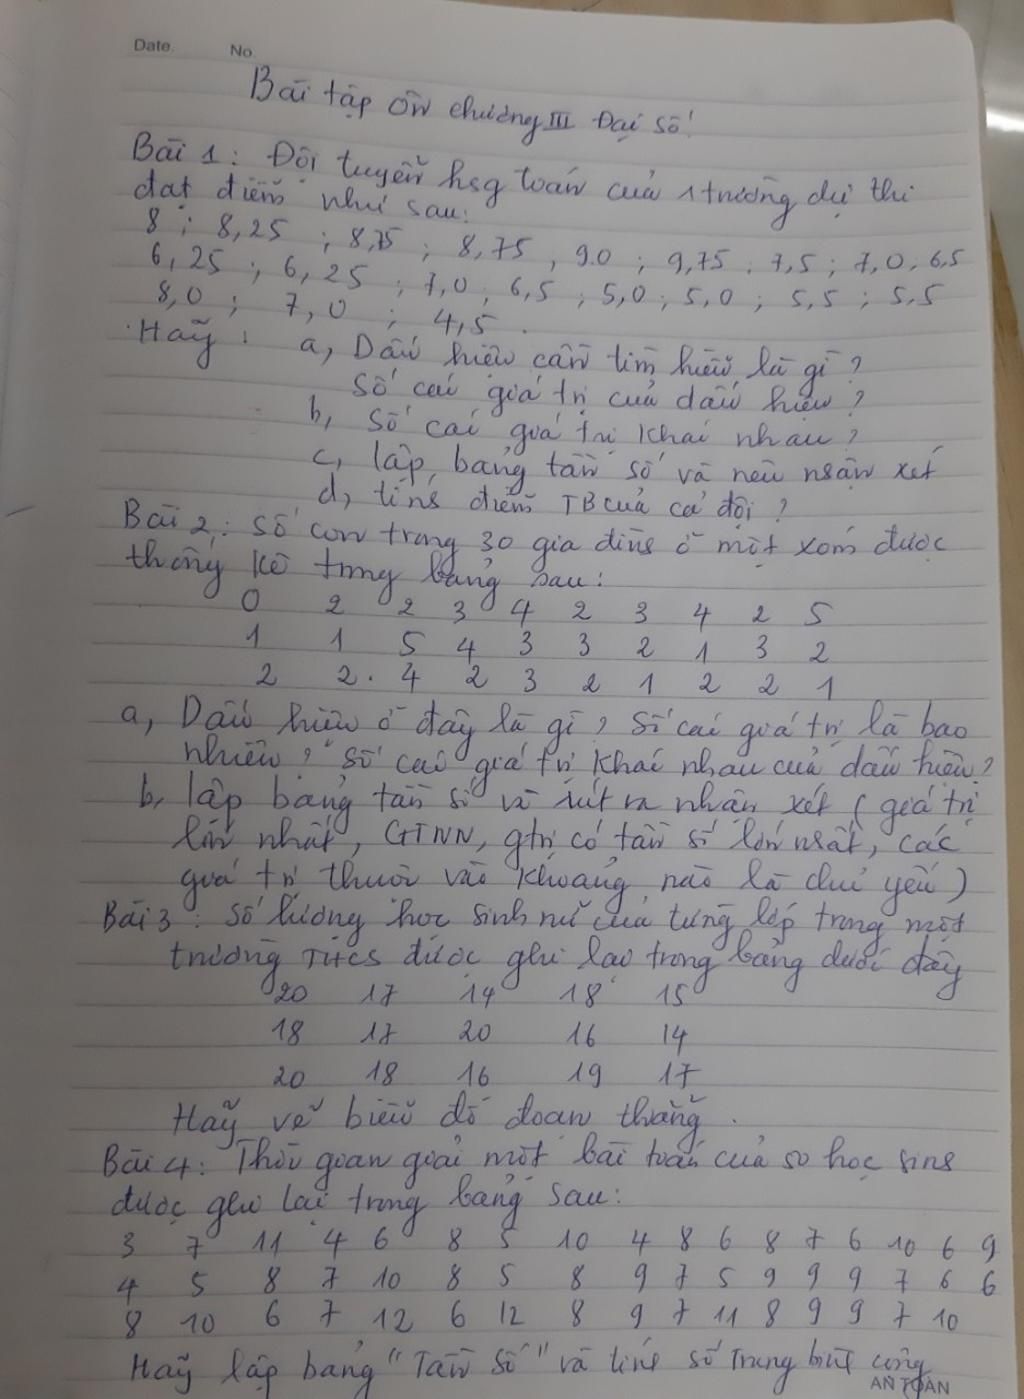 Date. No.
Bài tập ôn chương III Đại số
Bài 1: Đội tuyển hsg toán của 1 trường dự thi
đạt điểm như sau:
8 ; 8,25 ; 8,75 ; 8,75 , 9.0 ; 9,75 ; 7,5 ; 7,0 , 6,5
6,25 ; 6,25 ; 7,0 ; 6,5 ; 5,0 ; 5,0 ; 5,5 ; 5,5
8,0 ; 7,0 ; 4,5 .
Hãy : a, Dấu hiệu cần tìm hiểu là gì ?
Số các giá trị của dấu hiệu ?
b, Số các giá trị khác nhau ?
c, lập bảng tần số và nêu nhận xét
d, tính điểm TB của cả đội ?
Bài 2: Số con trong 30 gia đình ở một xóm được
thống kê trong bảng sau:
0 2 2 3 4 2 3 4 2 5
1 1 5 4 3 3 2 1 3 2
2 2. 4 2 3 2 1 2 2 1
a, Dấu hiệu ở đây là gì ? Số các giá trị là bao
nhiêu ? Số các giá trị khác nhau của dấu hiệu ?
b, lập bảng tần số và rút ra nhận xét ( giá trị
lớn nhất, GTNN, gtrị có tần số lớn nhất, các
giá trị thuộc vào khoảng nào là chủ yếu )
Bài 3: Số lượng học sinh nữ của từng lớp trong một
trường THCS được ghi lại trong bảng dưới đây
20 17 14 18 15
18 17 20 16 14
20 18 16 19 17
Hãy vẽ biểu đồ đoạn thẳng .
Bài 4: Thời gian giải một bài toán của 50 học sinh
được ghi lại trong bảng sau:
3 7 11 4 6 8 5 10 4 8 6 8 7 6 10 6 9
4 5 8 7 10 8 5 8 9 7 5 9 9 9 7 6 6
8 10 6 7 12 6 12 8 9 7 11 8 9 9 7 10
Hãy lập bảng "Tần số" và tính số trung bình cộng
AN TOÀN